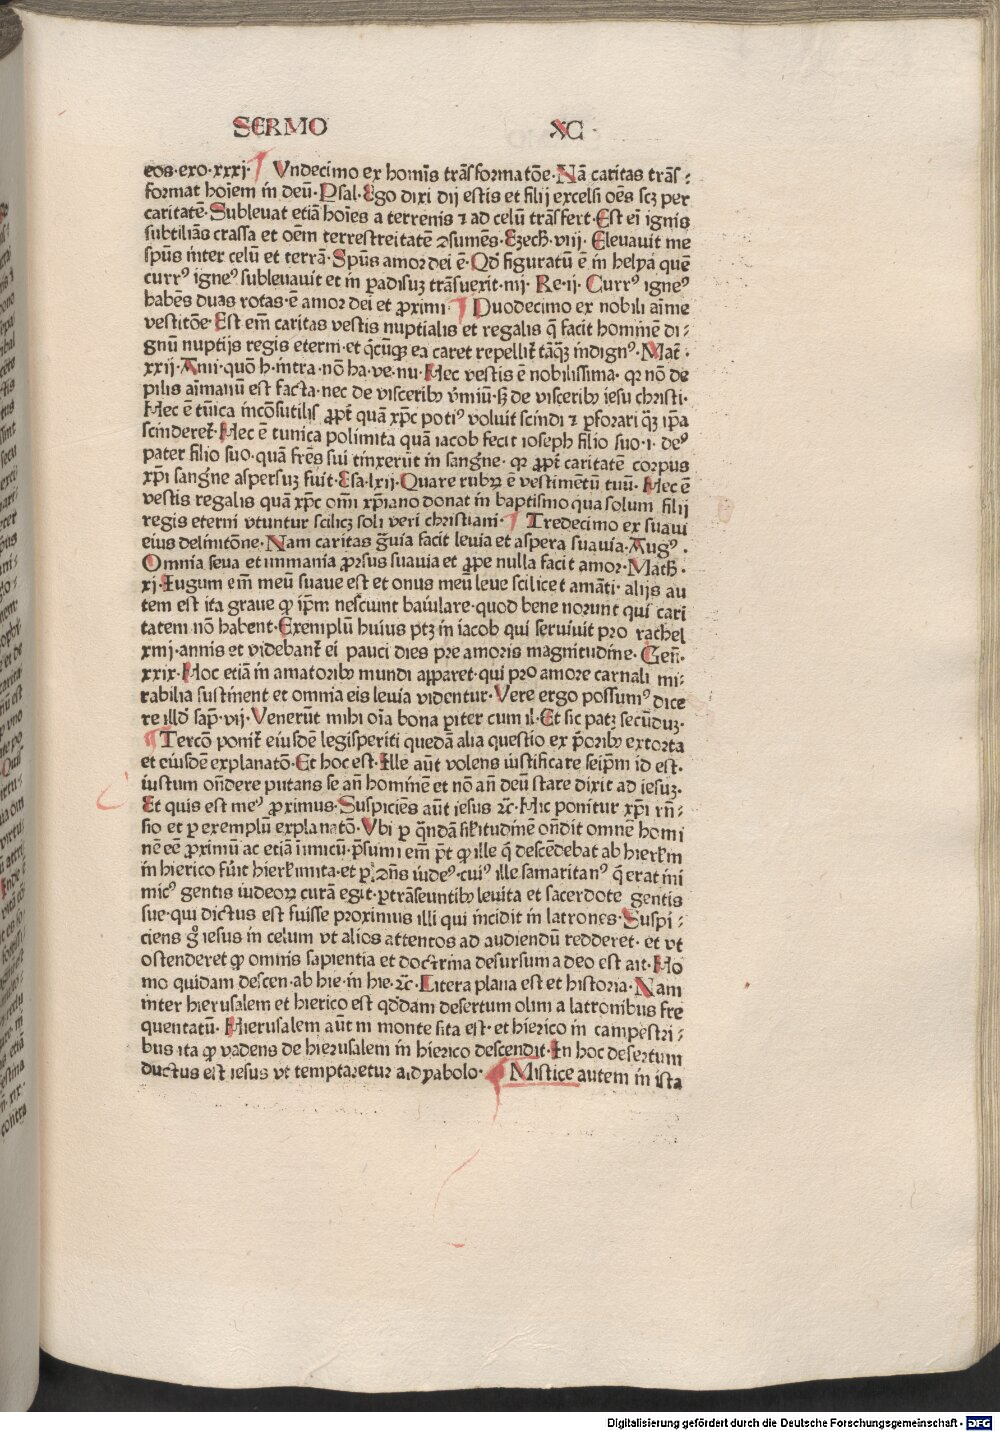 SERMO XC
eos·exo·xxxj· ¶ Vndecimo ex homīs trāsformatōe·Nā caritas trās⸗
format hoīem in deū·Psal·Ego dixi dij estis et filij excelsi oēs scꝫ per
caritatē·Subleuat etiā hoīes a terrenis ⁊ ad celū trāsfert·Est eī ignis
subtiliās crassa et oēm terrestreitatē ꝯsumēs·Ezech̄·viij·Eleuauit me
spūs inter celū et terrā·Spūs amor dei ē·Qd̄ figuratū ē in helya quē
currꝰ igneꝰ subleuauit et in ꝑadisuꝫ trāsuexit·iiij·Re·ij·Currꝰ igneꝰ
habēs duas rotas·ē amor dei et ꝓximi· ¶ Duodecimo ex nobili aīme
vestitōe·Est em̄ caritas vestis nuptialis et regalis q̄ facit hominē di⸗
gnū nuptijs regis eterni·et q̄cūqꝫ ea caret repellit̄ tāqꝫ̄ indignꝰ·Mat̄·
xxij·Amī·quō h·intra·nō ha·ve·nu·Hec vestis ē nobilissima·qꝛ nō de
pilis aīmaliū est facta·nec de visceribꝰ v̄miū·sꝫ de visceribꝰ iesu christi·
Hec ē tūica incōsutilis ꝓpt̄ quā xp̄c potiꝰ voluit scindi ⁊ ꝑforari qꝫ̄ ip̄a
scinderet̄·Hec ē tunica polimita quā iacob fecit ioseph filio suo·i·deꝰ
pater filio suo·quā frēs sui tinxerūt in sangīne·qꝛ ꝓpt̄ caritatē corpus
xp̄i sangīne aspersuꝫ fuit·Esa·lxij·Quare rubꝝ ē vestimētū tuū·Hec ē
vestis regalis quā xp̄c om̄i xp̄iano donat in baptismo qua solum filij
regis eterni vtuntur scilicꝫ soli veri christiani· ¶ Tredecimo ex suaui
eius delinitōne·Nam caritas g̃uia facit leuia et aspera suauia·Augꝰ·
Omnia seua et inmania ꝓrsus suauia et ꝓpe nulla facit amor·Math̄·
xj·Iugum em̄ meū suaue est et onus meū leue scilicet amāti·alijs au
tem est ita graue ꝙ ip̄m nesciunt baiulare·quod bene norunt qui cari
tatem nō habent·Exemplū huius ptꝫ in iacob qui seruiuit pro rachel
xiiij·annis et videbant̄ ei pauci dies pre amoris magnitudine·Gen̄·
xxix·Hoc etiā in amatoribꝰ mundi apparet·qui pro amore carnali mi⸗
rabilia sustinent et omnia eis leuia videntur·Vere ergo possumꝰ dice
re illd̄ sap̄·vij·Venerūt mihi oīa bona ꝑiter cum il·Et sic patꝫ secūduꝫ·
¶ Tercō ponit̄ eiusdē legisperiti quedā alia questio ex p̄oribꝰ extorta
et eiusdē explanatō·Et hoc est·Ille aūt volens iustificare seip̄m id est·
iustum on̄dere putans se an̄ hominē et nō an̄ deū stare dixit ad iesuꝫ·
Et quis est meꝰ ꝓximus·Suspiciēs aūt iesus ⁊c̄·Hic ponitur xp̄i rn̄⸗
sio et ꝑ exemplū explanatō·Vbi ꝑ q̄ndā similitudinē on̄dit omnē homi
nē eē ꝓximū ac etiā inimicū·p̄sumi em̄ p̄t ꝙ ille q̄ descēdebat ab hierl̄m
in hierico fūit hierl̄imita·et ꝑ ꝯn̄s iudeꝰ·cuiꝰ ille samaritanꝰ q̄ erat ini
micꝰ gentis iudeoꝝ curā egit·p̄trāseuntibꝰ leuita et sacerdote gentis
sue·qui dictus est fuisse proximus illi qui incidit in latrones·Suspi⸗
ciens gͦ iesus in celum vt alios attentos ad audiendū redderet·et vt
ostenderet ꝙ omnis sapientia et doctrina desursum a deo est ait·Ho
mo quidam descen·ab hie·in hie·⁊c̄·Litera plana est et historia·Nam
inter hierusalem et hierico est qd̄dam desertum olim a latronibus fre
quentatū·Hierusalem aūt in monte sita est·et hierico in campestri⸗
bus ita ꝙ vadens de hierusalem in hierico descendit·In hoc desertum
ductus est iesus vt temptaretur a dyabolo· ¶ Mistice autem in ista
Digitalisierung gefördert durch die Deutsche Forschungsgemeinschaft · DFG